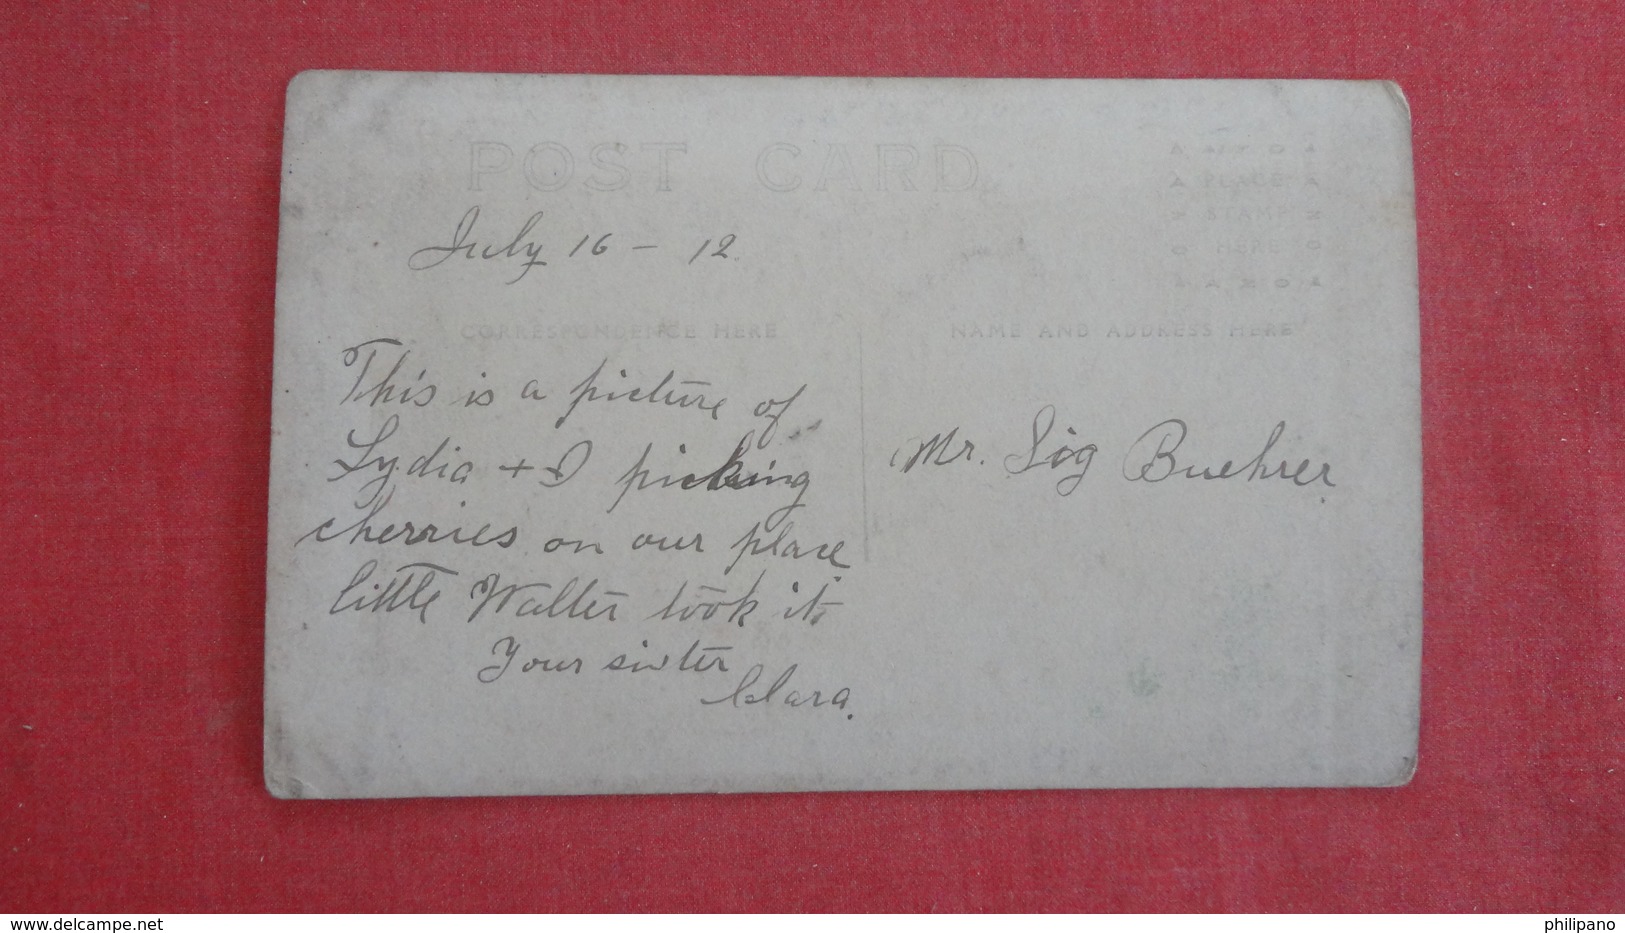 POST CARD
AZO
PLACE
STAMP
HERE
AZO
July 16 - 12.
CORRESPONDENCE HERE
NAME AND ADDRESS HERE
This is a picture of
Lydia + I picking
cherries on our place
little Walter took it.
Your sister
Clara.
Mr. Sig Buehrer
www.delcampe.net
philipano